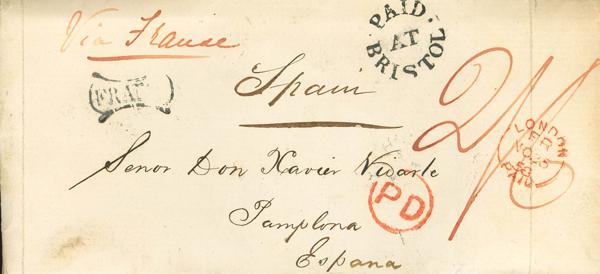 Via Franse
PAID
AT
BRISTOL
FRAN
Spain
2/
LONDON
PAID
Senor Don Xavier Vidarte
PD
Pamplona
Espana